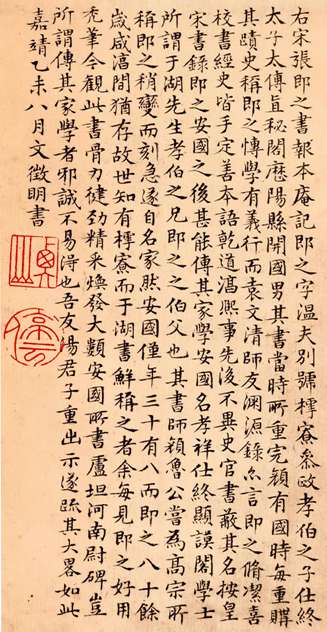 右宋張即之書報本庵記即之字溫夫別號樗寮參政孝伯之子仕終
太子太傅直秘閣歷陽縣開國男其書當時所重完顏有國時每重購
其蹟史稱即之博學有義行而袁文清師友淵源錄亦言即之脩潔喜
校書經史皆手定善本語乾道淳熙事先後不異史官書蔽其名按皇
宋書錄即之安國之後甚能傳其家學安國名孝祥仕終顯謨閣學士
所謂于湖先生孝伯之兄即之之伯父也其書師顏魯公嘗為高宗所
稱即之稍變而刻急遂自名家然安國僅年三十有八而即之八十餘
咸淳間猶存故世知有樗寮而于湖書鮮稱之者余每見即之好用
禿筆今觀此書骨力健勁精采煥發大類安國所書盧坦河南尉碑豈
所謂傳其家學者邪誠不易得也吾友湯君子重出示遂疏其大畧如此
嘉靖乙未八月文徵明書